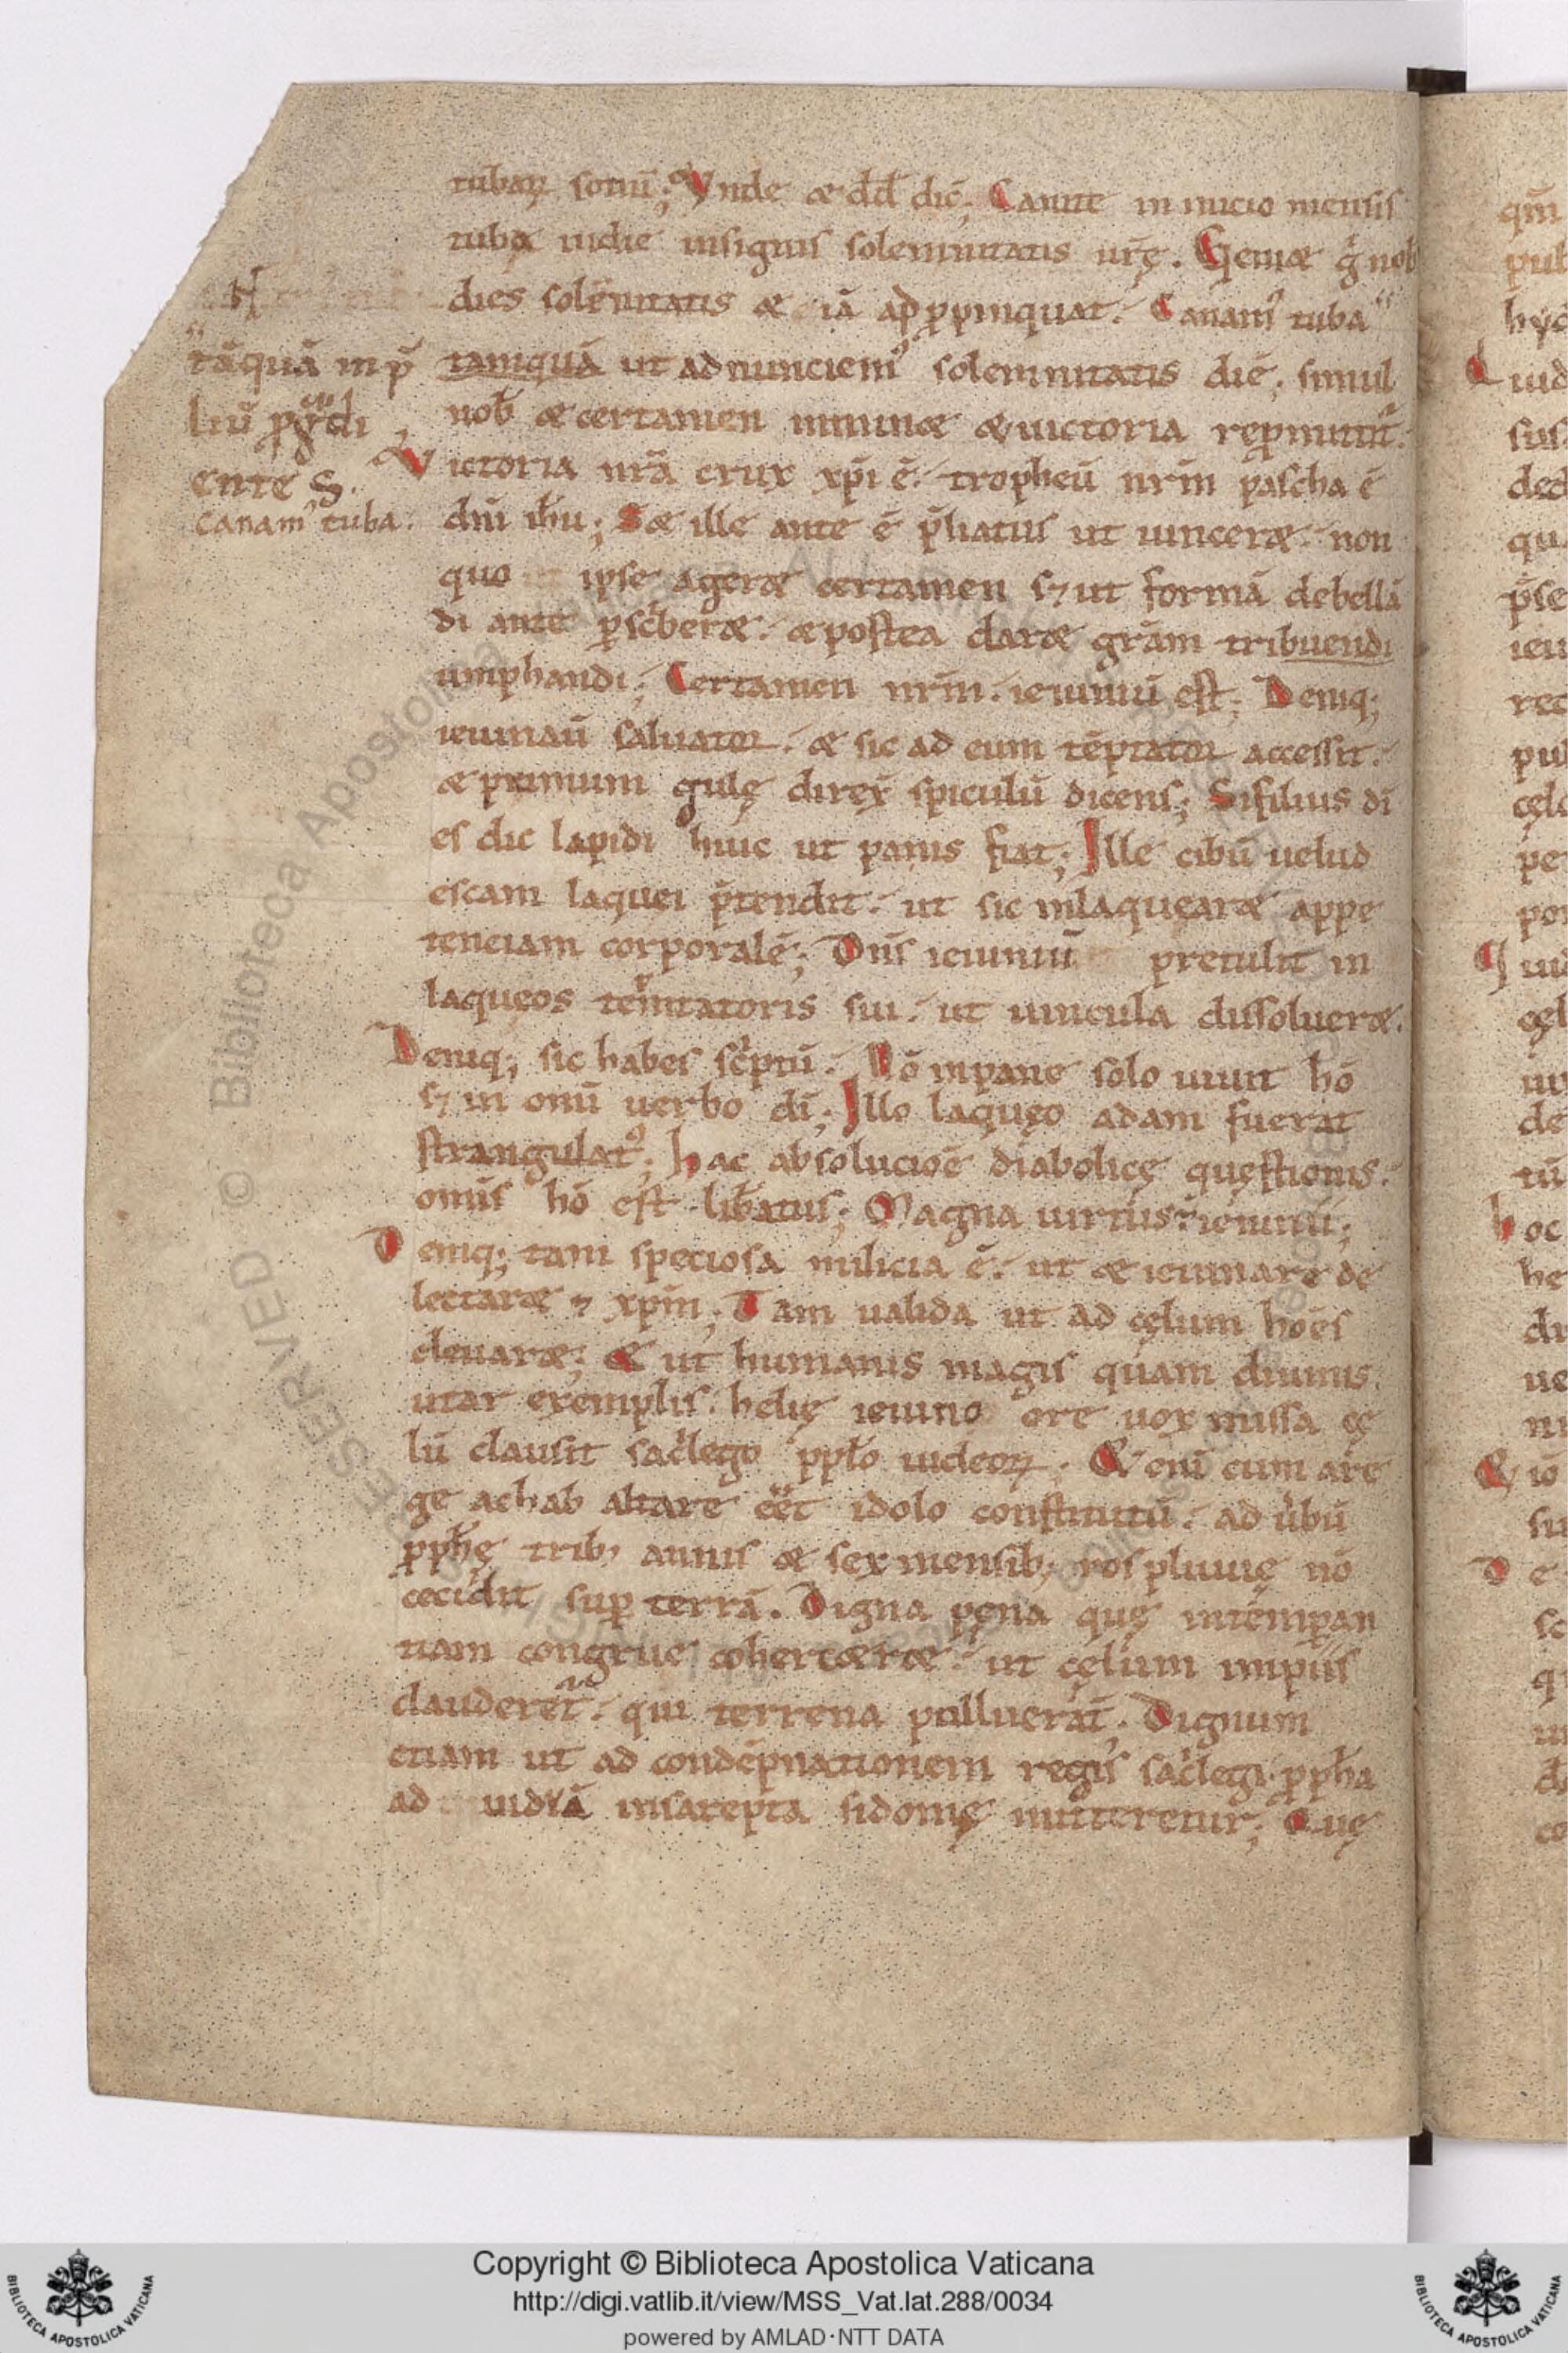 tubaꝝ sonū; Vnde & dd̄ dic̄; Canite in inicio mensis
tuba indie insignis solemnitatis ur̄ę. Veniæ g̊ nob̄
dies solēnitatis & iā ap̄ꝓpinquat. Canam᷒ tuba
tamquā ut adnunciem᷒ solemnitatis diē; simul
nob̄ & certamen inminæ & uictoria rep̱mittit᷑.
Victoria nr̄a crux xp̄i ē. tropheū nr̄m pascha ē
dn̄i ih̄u; Sæ ille ante ē p̄liatus ut uinceræ. non
quo ipse ageræ certamen sꝫ ut formā debellā
di ante p̱sc̄beræ. & postea daræ gr̄am tribuendi
umphandi; Certamen nr̄m. ieiuniū est; Deniq;
ieiunau᷑ saluator. & sic ad eum tēptator accessit.
& primum gulę direx̄ spiculū dicens; Sifilius di
es dic lapidi huic ut panis fiat; Ille cibū uelud
escam laquei p̄tendit. ut sic inlaqueare appe
tenciam corporalē; Dn̄s ieiuniū pretulit in
laqueos temtatoris sui. ut uincula dissolueræ.
Deniq; sic habes sc̄ptū. Nō inpane solo uiuit hō
sꝫ in omī uerbo dī; Illo laqueo adam fuerat
strangulat᷒; hac absolucioē diabolicę questionis.
omīs hō est lib̄atus; Magna uirtus ieiunii;
Deniq; tam speciosa milicia ē. ut & ieiunare de
lectaræ ⁊ xp̄m; Tam ualida ut ad cęlum hoēs
eleuaræ; & ut humanis magis quam diuinis
utar exemplis. helię ieiuno ore uox missa cę
lū clausit sac̄lego ppl̄o iudeoꝝ. & enī cum are
ge achab altare eēt idolo constitutū. ad ūbū
ꝓph̄ę trib; annis & sex mensib; ros pluuię nō
cecidit sup̱ terrā. Digna pęna quę intēp̱an
tiam congrue cohercæræ. ut cęlum impiis
clauderet᷑. qui terrena polluerat᷑; Dignum
etiam ut ad condēpnationem regis sac̄legi ꝓph̄a
ad uiduā insarepta sidonię mitteretur; Quę
tāquā inp̄
liū ꝓgrēdi
ente S.
canam᷒ tuba.
Copyright © Biblioteca Apostolica Vaticana
http://digi.vatlib.it/view/MSS_Vat.lat.288/0034
powered by AMLAD·NTT DATA